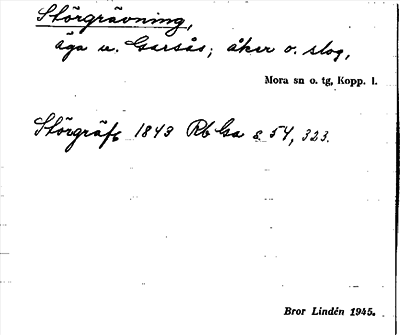 Störgrävning,
äga u. Garsås; åker o. slog,
Mora sn o. tg, Kopp. l.
Störgräfn 1843 Rb Ga s. 54, 323.
Bror Lindén 1945.